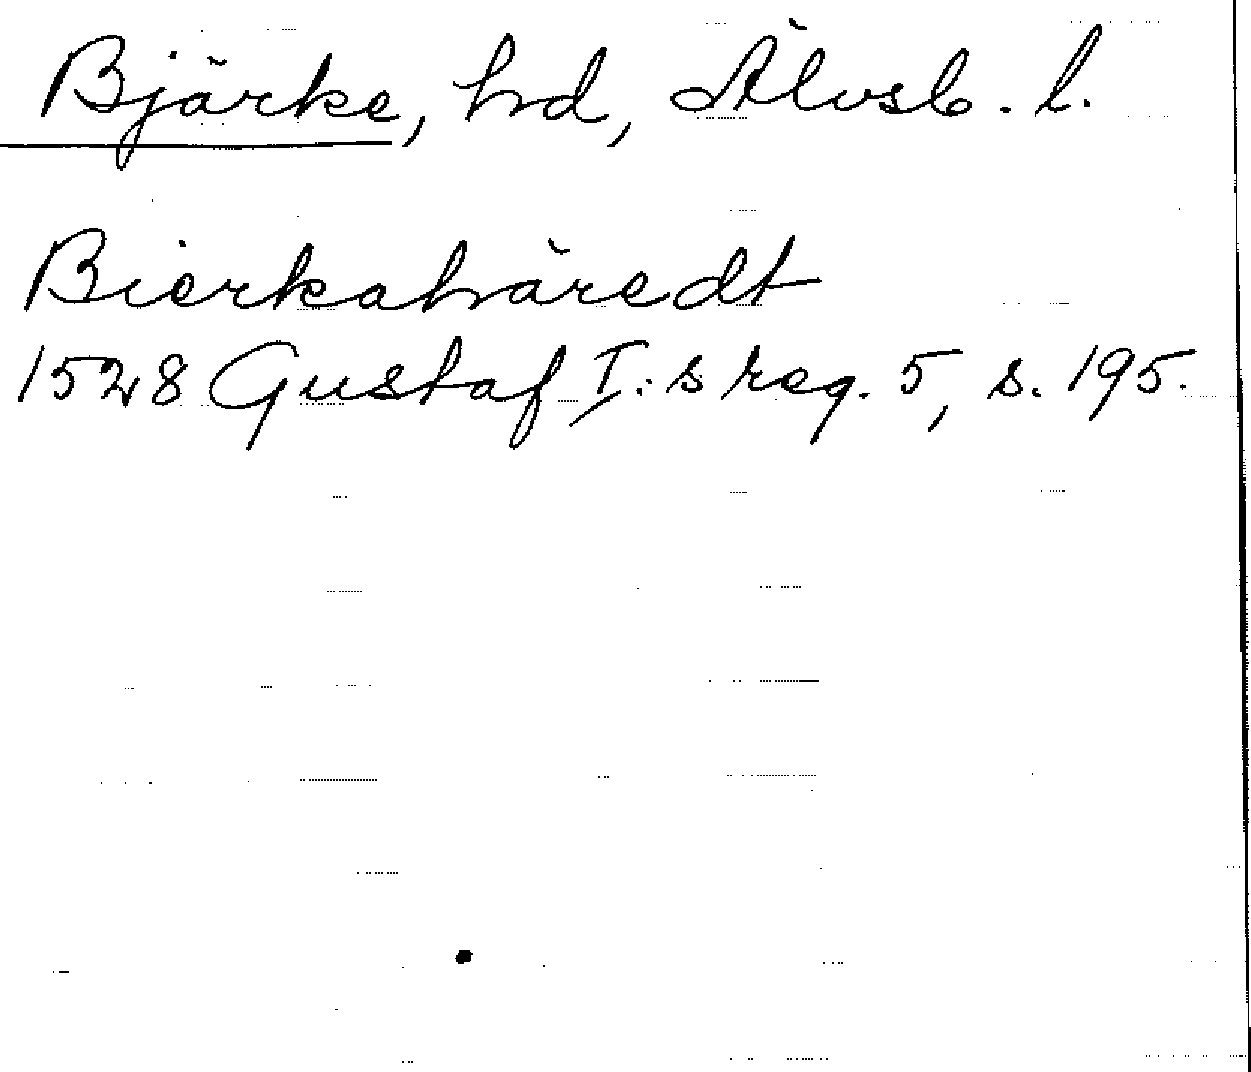 Bjärke, hd, Älvsb. l.
Bierkahäredt
1528 Gustaf I:s reg. 5, s. 195.